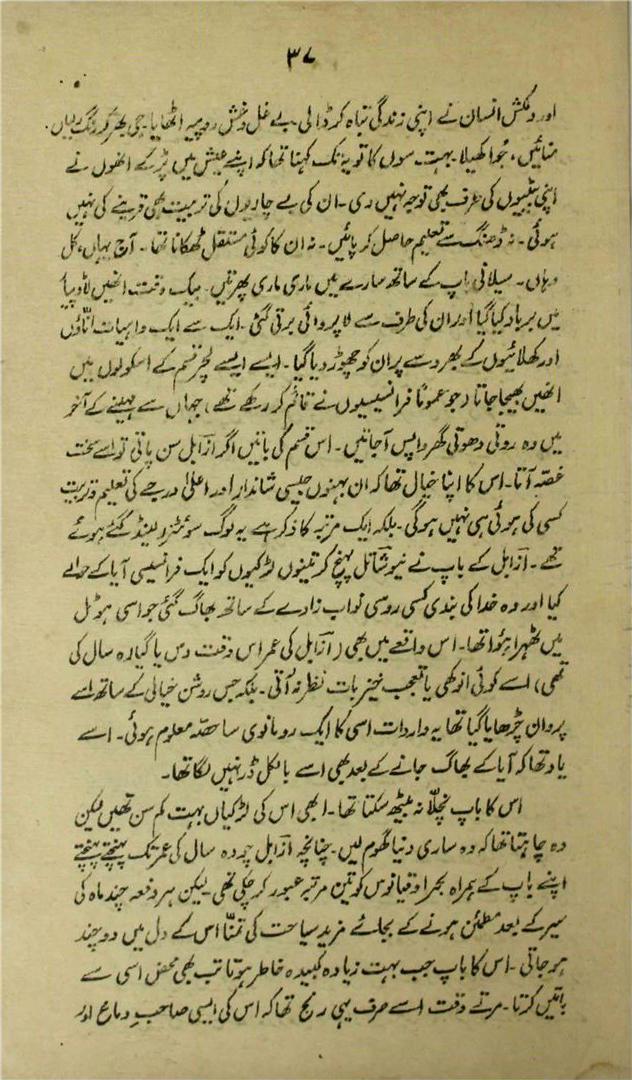 ۳۷
اور دلکش انسان نے اپنی زندگی تباہ کر ڈالی۔ بے غل و غش روپیہ اٹھایا۔ جی بھر کر رنگ رلیاں
منائیں، جُوا کھیلا۔ بہت سوں کا تو یہ تک کہنا تھا کہ اپنے عیش میں پڑ کے انھوں نے
اپنی بیٹیوں کی طرف بھی توجہ نہیں دی۔ ان کی بے چاریوں کی تربیت بھی قرینے کی نہیں
ہوئی۔ نہ ڈھنگ سے تعلیم حاصل کر پائیں۔ نہ ان کا کوئی مستقل ٹھکانا تھا۔ آج یہاں، کل
وہاں۔ سیلانی باپ کے ساتھ سارے میں ماری ماری پھرتیں۔ بیک وقت انھیں لاڈ پیار
میں برباد کیا گیا اور ان کی طرف سے لا پروائی برتی گئی۔ ایک سے ایک واہیات انّاؤں
اور کھلائیوں کے بھروسے پر ان کو چھوڑ دیا گیا۔ ایسے ایسے لچر قسم کے اسکولوں میں
انھیں بھیجا جاتا (جو عموماً فرانسیسیوں نے قائم کر رکھے تھے) جہاں سے مہینے کے آخر
میں وہ روتی دھوتی گھر واپس آ جاتیں۔ اس قسم کی باتیں اگر آزابل سن پاتی تو اسے سخت
غصّہ آتا۔ اس کا اپنا خیال تھا کہ ان بہنوں جیسی شاندار اور اعلیٰ درجے کی تعلیم و تربیت
کسی کی ہوئی ہی نہیں ہوگی۔ بلکہ ایک مرتبہ کا ذکر ہے یہ لوگ سوئٹزرلینڈ گئے ہوئے
تھے۔ آزابل کے باپ نے نیو شاتل پہنچ کر تینوں لڑکیوں کو ایک فرانسیسی آیا کے حوالے
کیا اور وہ خدا کی بندی کسی روسی نواب زادے کے ساتھ بھاگ گئی جو اسی ہوٹل
میں ٹھہرا ہوا تھا۔ اس واقعے میں بھی (آزابل کی عمر اس وقت دس یا گیارہ سال کی
تھی) اسے کوئی انوکھی یا تعجب خیز بات نظر نہ آئی۔ بلکہ جس روشن خیالی کے ساتھ اسے
پروان چڑھایا گیا تھا یہ واردات اسی کا ایک رومانوی سا حصّہ معلوم ہوئی۔ اسے
یاد تھا کہ آیا کے بھاگ جانے کے بعد بھی اسے بالکل ڈر نہیں لگا تھا۔
اس کا باپ نچلّا نہ بیٹھ سکتا تھا۔ ابھی اس کی لڑکیاں بہت کم سن تھیں لیکن
وہ چاہتا تھا کہ وہ ساری دنیا گھوم لیں۔ چنانچہ آزابل چودہ سال کی عمر تک پہنچتے پہنچتے
اپنے باپ کے ہمراہ بحر اوقیانوس کو تین مرتبہ عبور کر چکی تھی۔ لیکن ہر دفعہ چند ماہ کی
سیر کے بعد مطمئن ہونے کے بجائے مزید سیاحت کی تمنّا اس کے دل میں دو چند
ہو جاتی۔ اس کا باپ جب بہت زیادہ کبیدہ خاطر ہوتا تب بھی محض اسی سے
باتیں کرتا۔ مرتے وقت اسے صرف یہی رنج تھا کہ اس کی ایسی صاحبِ دماغ اور